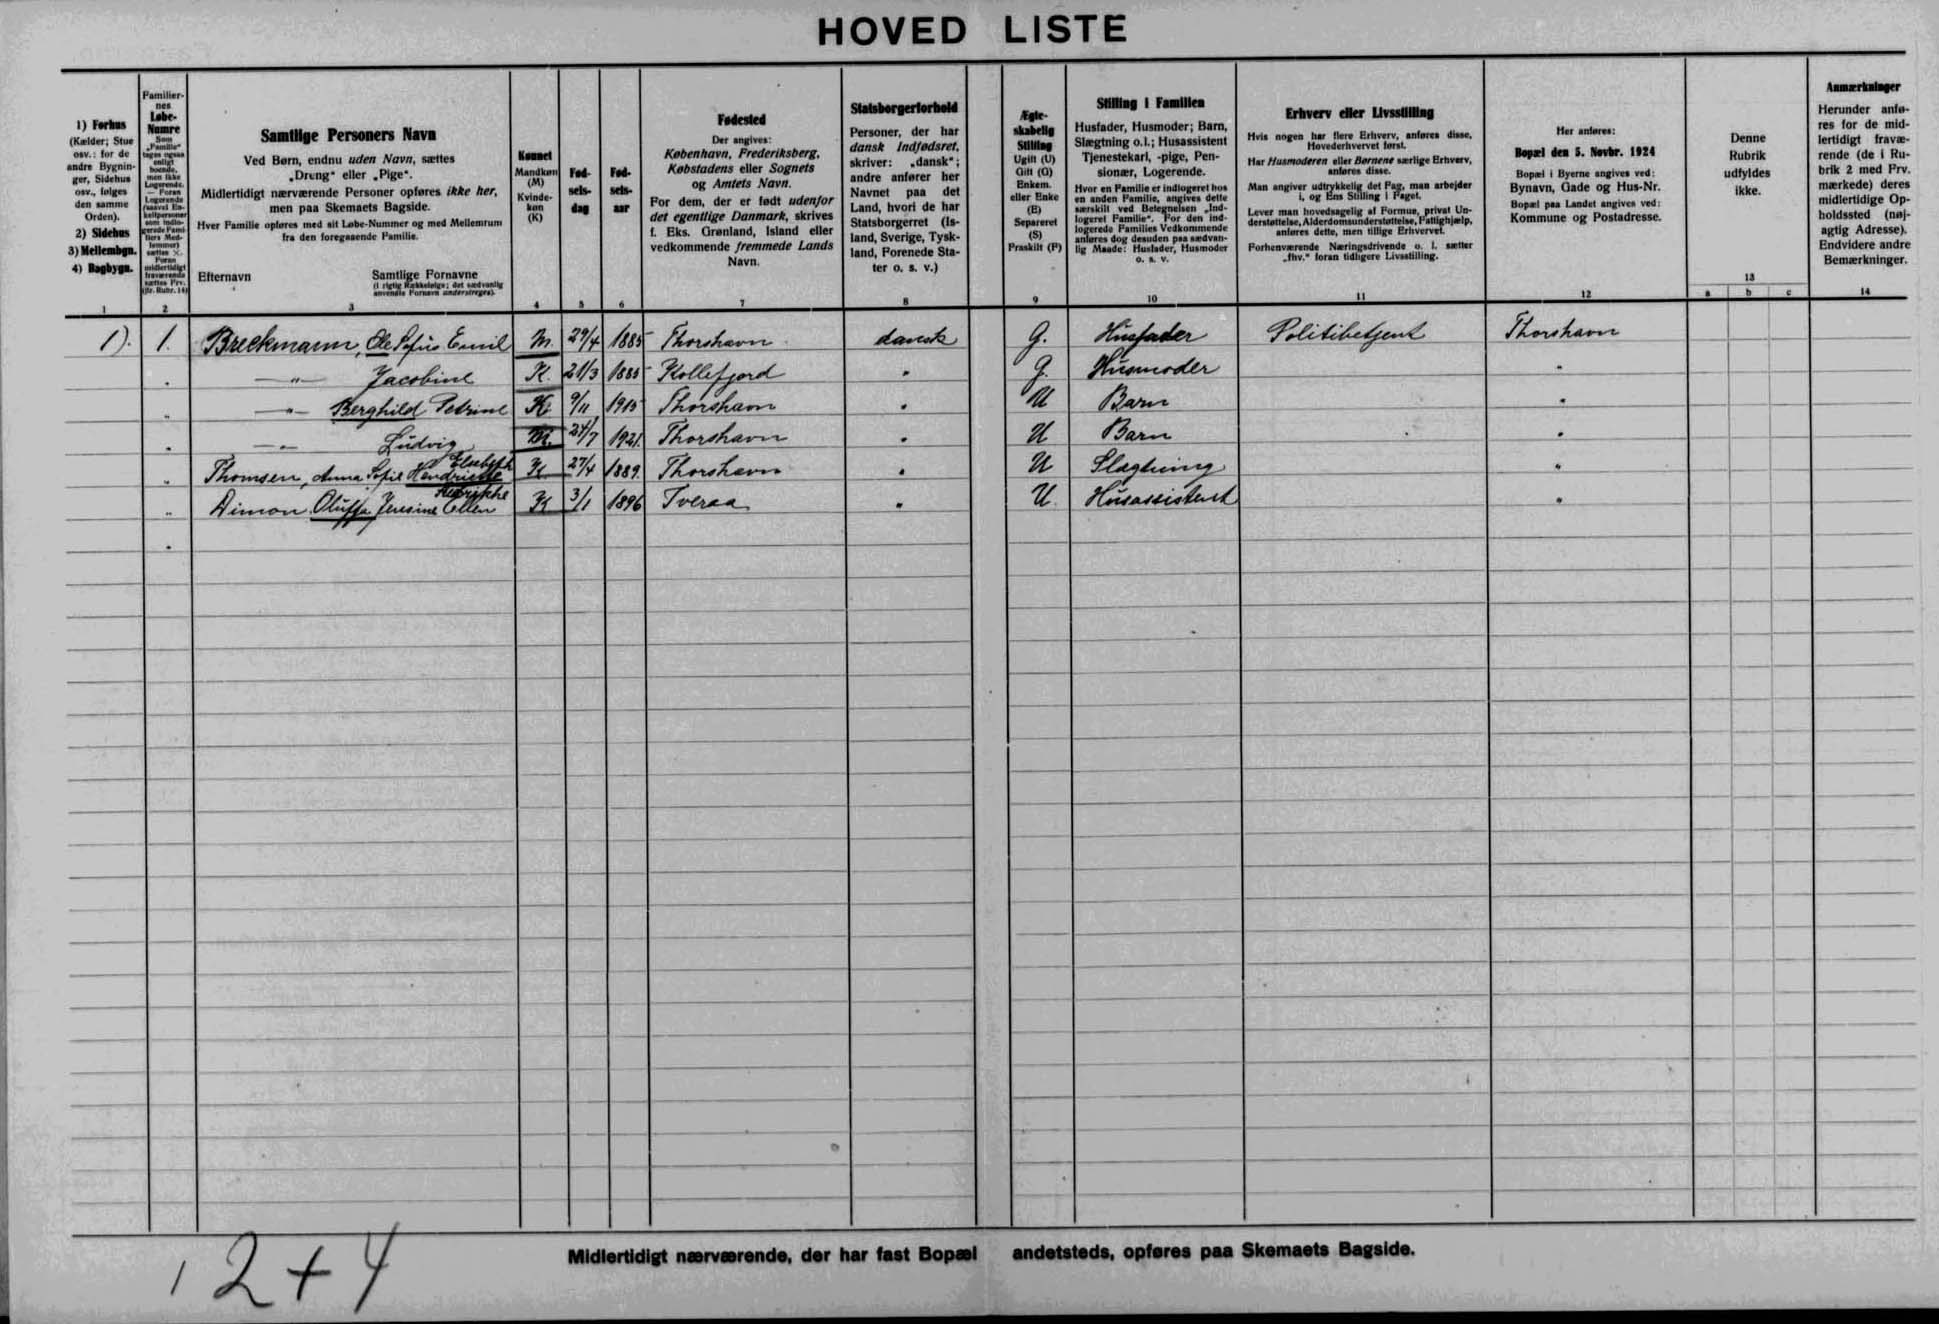 HOVED LISTE
1) Forhus
(Kælder; Stue
osv.: for de
andre Bygnin-
ger, Sidehus
osv., følges
den samme
Orden).
2) Sidehus
3) Mellembgn.
4) Bagbygn.
1
Familier-
nes
Løbe-
Numre
Som
„Familie"
tages ogsaa
enligt
boende,
men ikke
Logerende.
— Foran
Logerende
(saavel En-
keltpersoner
som indlo-
gerede Fami-
liers Med-
lemmer)
sættes ×.
Foran
midlertidigt
fraværende
sættes Frv.
(jfr. Rubr. 14)
2
Samtlige Personers Navn
Ved Børn, endnu uden Navn, sættes
„Dreng" eller „Pige".
Midlertidigt nærværende Personer opføres ikke her,
men paa Skemaets Bagside.
Hver Familie opføres med sit Løbe-Nummer og med Mellemrum
fra den foregaaende Familie.
Efternavn
Samtlige Fornavne
(i rigtig Rækkefølge; det sædvanlig
anvendte Fornavn understreges).
3
Kønnet
Mandkøn
(M)
Kvinde-
køn
(K)
4
Fød-
sels-
dag
5
Fød-
sels-
aar
6
Fødested
Der angives:
København, Frederiksberg,
Købstadens eller Sognets
og Amtets Navn.
For dem, der er født udenfor
det egentlige Danmark, skrives
f. Eks. Grønland, Island eller
vedkommende fremmede Lands
Navn.
7
Statsborgerforhold
Personer, der har
dansk Indfødsret,
skriver: „dansk";
andre anfører her
Navnet paa det
Land, hvori de har
Statsborgerret (Is-
land, Sverige, Tysk-
land, Forenede Sta-
ter o. s. v.)
8
Ægte-
skabelig
Stilling
Ugift (U)
Gift (G)
Enkem.
eller Enke
(E)
Separeret
(S)
Fraskilt (F)
9
Stilling i Familien
Husfader, Husmoder; Barn,
Slægtning o.l.; Husassistent
Tjenestekarl, -pige, Pen-
sionær, Logerende.
Hvor en Familie er indlogeret hos
en anden Familie, angives dette
særskilt ved Betegnelsen „Ind-
logeret Familie". For den ind-
logerede Families Vedkommende
anføres dog desuden paa sædvan-
lig Maade: Husfader, Husmoder
o. s. v.
10
Erhverv eller Livsstilling
Hvis nogen har flere Erhverv, anføres disse,
Hovederhvervet først.
Har Husmoderen eller Børnene særlige Erhverv,
anføres disse.
Man angiver udtrykkelig det Fag, man arbejder
i, og Ens Stilling i Faget.
Lever man hovedsagelig af Formue, privat Un-
derstøttelse, Alderdomsunderstøttelse, Fattighjælp,
anføres dette, men tillige Erhvervet.
Forhenværende Næringsdrivende o. l. sætter
„fhv." foran tidligere Livsstilling.
11
Her anføres:
Bopæl den 5. Novbr. 1924
Bopæl i Byerne angives ved:
Bynavn, Gade og Hus-Nr.
Bopæl paa Landet angives ved:
Kommune og Postadresse.
12
Denne
Rubrik
udfyldes
ikke.
13
a b c
Anmærkninger
Herunder anfø-
res for de mid-
lertidigt fravæ-
rende (de i Ru-
brik 2 med Frv.
mærkede) deres
midlertidige Op-
holdssted (nøj-
agtig Adresse).
Endvidere andre
Bemærkninger.
14
1). 1. Breckmann, Ole Sofus Emil M. 29/4 1885 Thorshavn dansk G. Husfader Politibetjent Thorshavn
" — " — Jacobine K. 21/3 1885 Kollefjord " G. Husmoder "
" — " — Berghild Petrine K. 9/11 1915 Thorshavn " U Barn "
" — " — Ludvig M. 24/7 1921. Thorshavn " U Barn "
Elsebeth
" Thomsen, Anna Sofie Hendriette K 27/4 1889. Thorshavn " U Slægtning "
" Dimon Oluffa Jensine Ellen K 3/1 1896 Tveraa " U. Husassistent "
Midlertidigt nærværende, der har fast Bopæl andetsteds, opføres paa Skemaets Bagside.
1 2 + 4